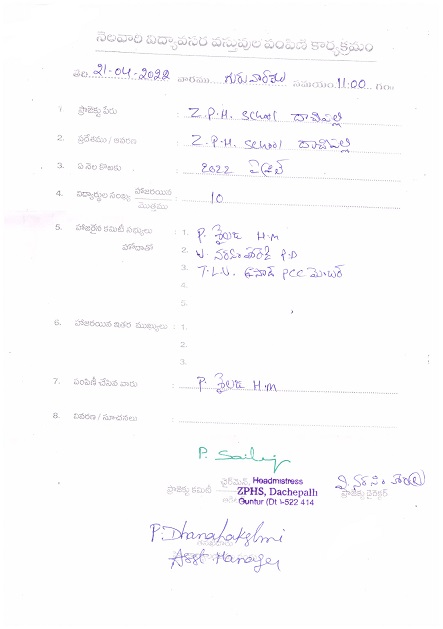 నెలవారి విద్యావసర వస్తువుల పంపిణి కార్యక్రమం
తేది. 21-04-2022 వారము గురువారము సమయం. 11:00 గం॥
1. ప్రాజెక్టు పేరు : Z.P.H. School దాచేపల్లి
2. ప్రదేశము / ఆవరణ : Z.P.H. School దాచేపల్లి
3. ఏ నెల కొఱకు : 2022 ఏప్రిల్
4. విద్యార్థుల సంఖ్య హాజరయిన / మొత్తము : 10
5. హాజరైన కమిటీ సభ్యులు : 1. P. శైలజ H.M
హోదాతో 2. P.D
3. T.L.V. ప్రసాద్ PCC మెంబర్
4.
5.
6. హాజరయిన ఇతర ముఖ్యులు : 1.
2.
3.
7. పంపిణీ చేసిన వారు : P. శైలజ H.M
8. వివరణ / సూచనలు :
P. Sailaja
ఛైర్మెన్, Headmistress
ప్రాజెక్టు కమిటీ ZPHS, Dachepalli ప్రాజెక్టు డైరెక్టర్
Guntur (Dt)-522 414
P. Dhanalakshmi
Asst. Manager